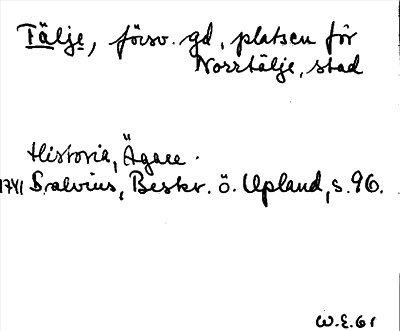 Tälje, försv. gd, platsen för
Norrtälje, stad
Historia, Ägare.
1741 Salvius, Beskr. ö. Upland, s. 96.
W.E. 61